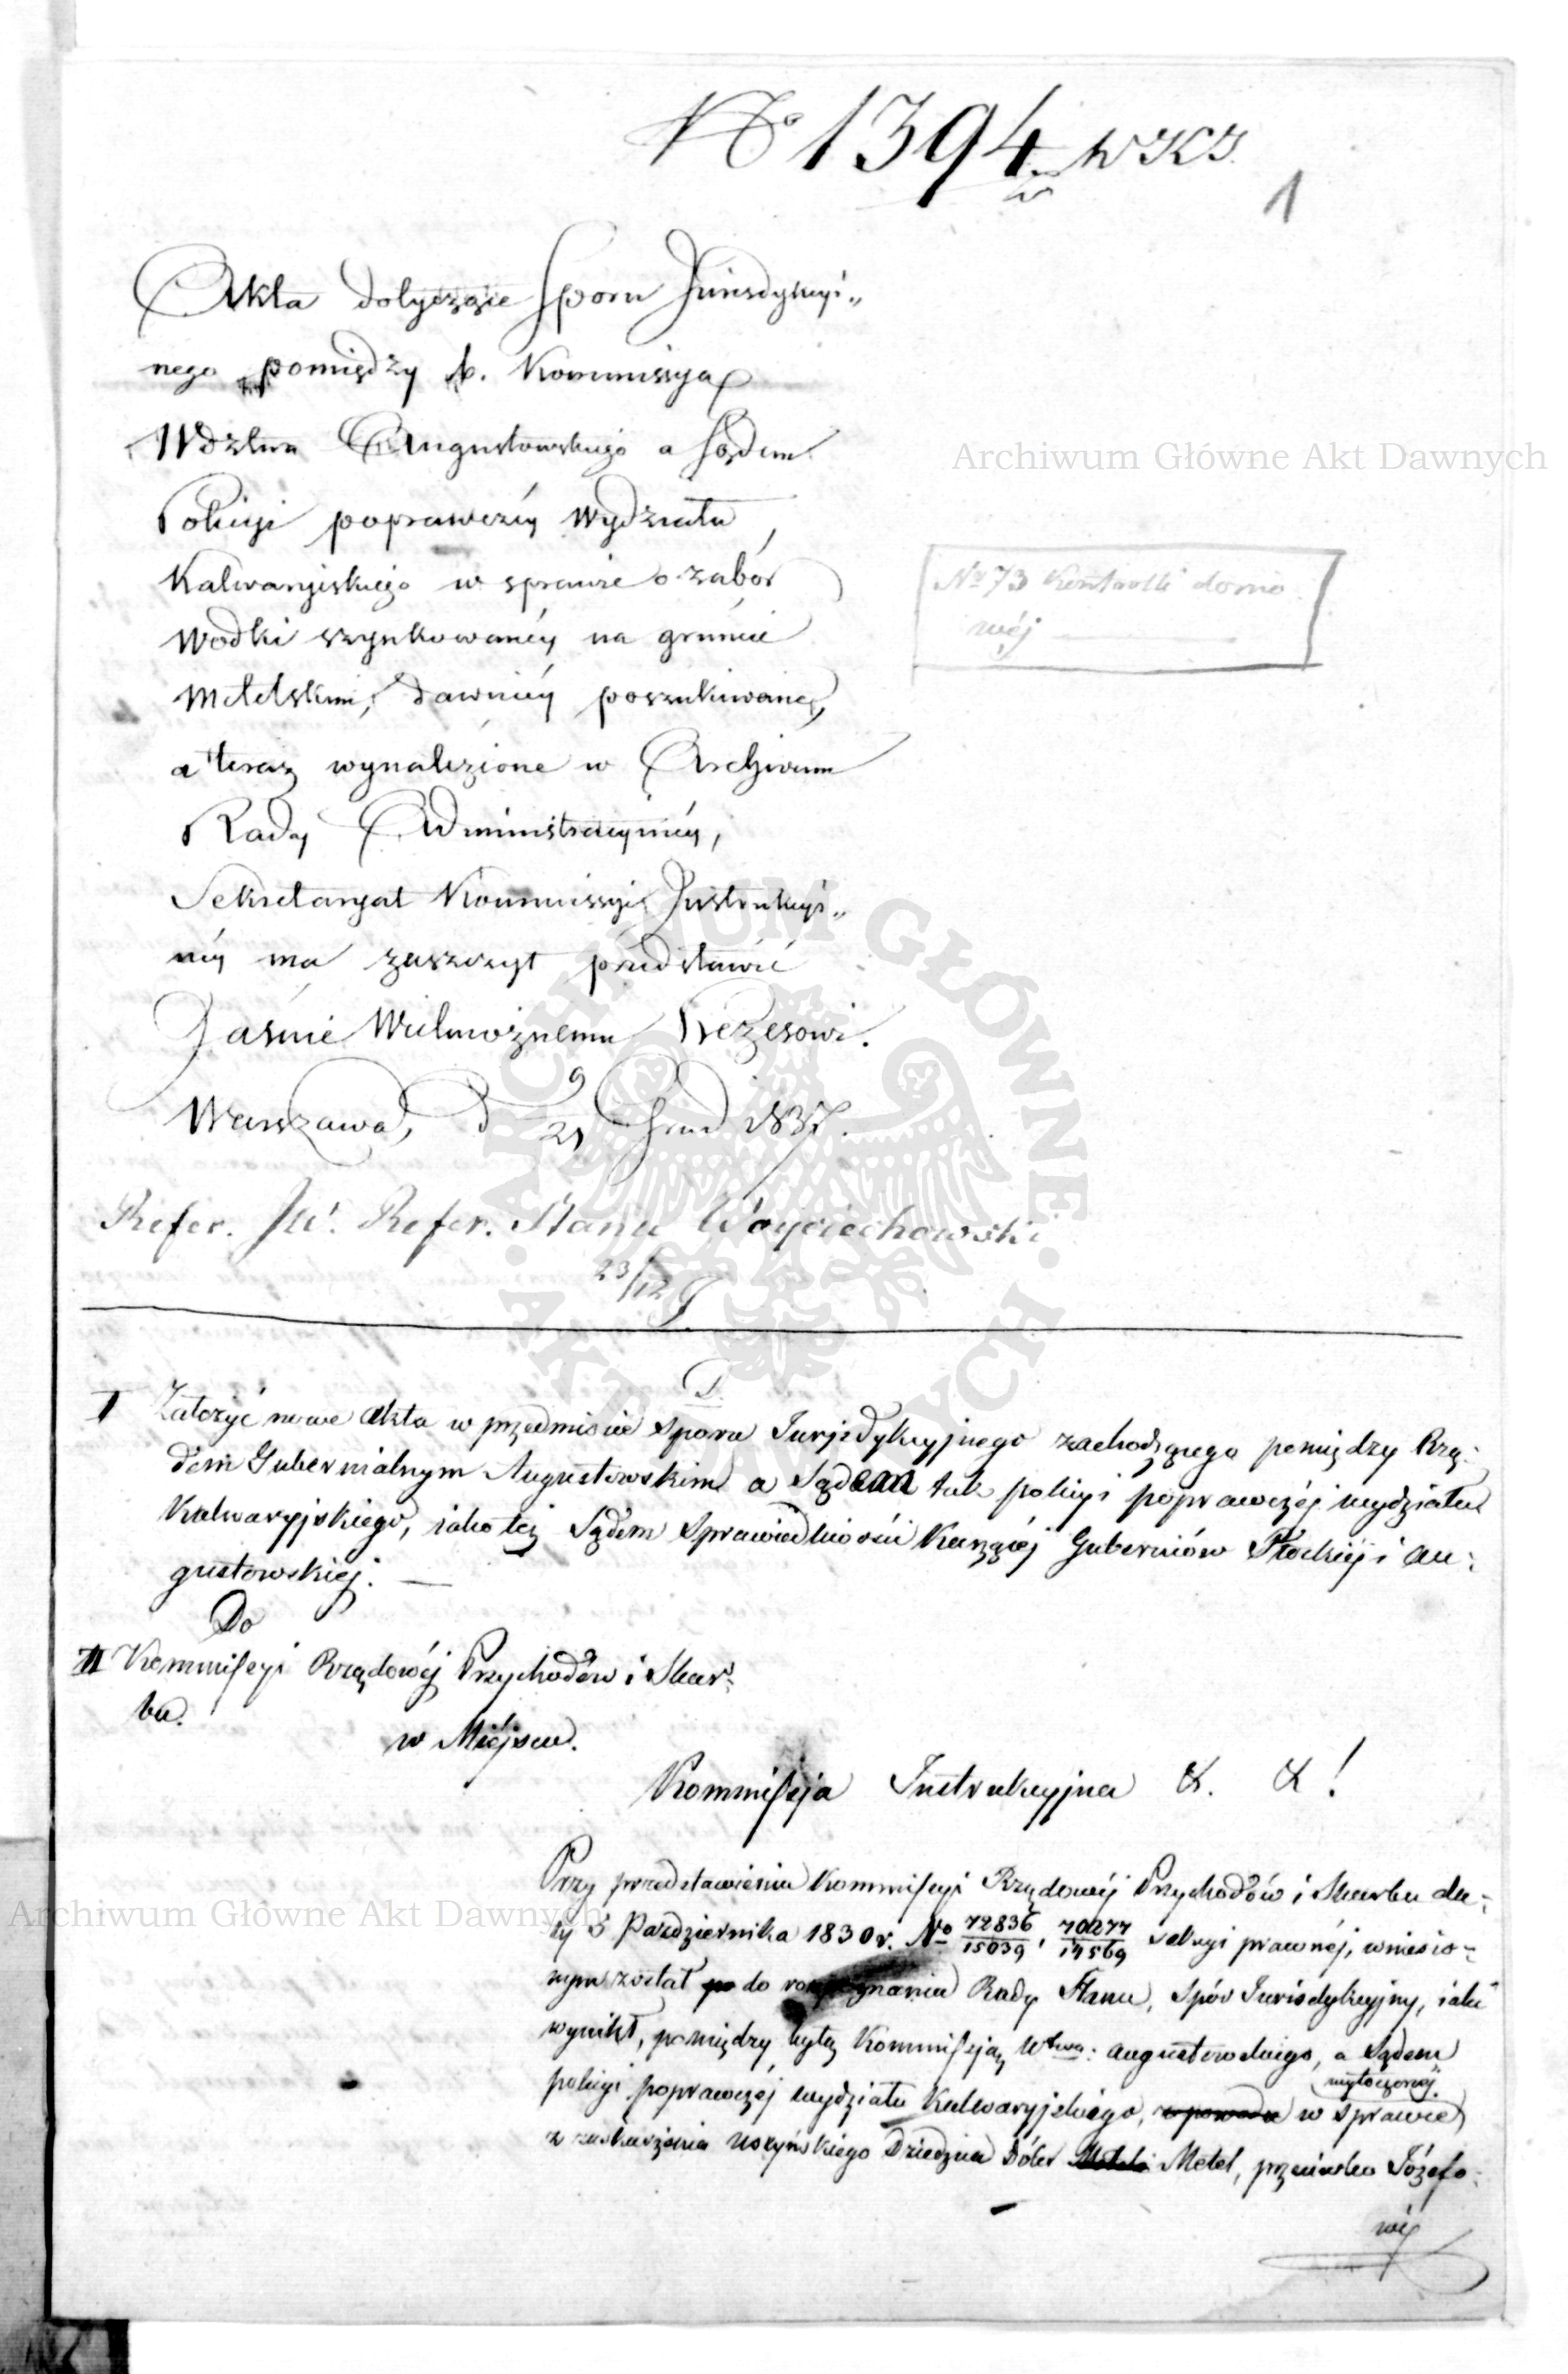 No 1394 w KJ.
1
Akta dotyczące Sporu Jurisdykcyi„
nego pomiędzy b. Kommissyą
Wdztwa Augustowskiego a Sądem
Policyi poprawczéy Wydziału
Kalwaryiskiego w sprawie o zabór
Wodki szynkowanéy na gruncie
Metelskim, dawniéy poszukiwane,
a teraz wynalezione w Archiwum
Rady Administracyinéy,
Sekretaryat Kommissyi Instrukcyi„
néy ma zaszczyt przedstawić
Jaśnie Wielmożnemu Prezesowi.
Warszawa, d 9/21 Grud 1837.
No 73 Kontrolli domo
wéj
Archiwum Główne Akt Dawnych
Refer. JW. Refer. Stanu Woyciechowski
23/12
D.
I Założyć nowe Akta w przedmiocie Sporu Jurjzdykcyjnego zachodzącego pomiędzy Rzą:
dem Gubernialnym Augustowskim a Sądem tak policyi poprawczéj wydziału
Kalwaryjskiego, iako też Sądem Sprawiedliwości Karzącéj Guberniów Płockiéj i Au:
gustowskiéj. —
Do
II Kommissyi Rządowéj Przychodów i Skar:
bu.
w Miejscu.
Kommissyja Instrukcyjna &. & !
Przy przedstawieniu Kommissyi Rządowéj Przychodów i Skarbu da:
ty 5 Października 1830 r. No 72836/15039, 70277/14569 sekcyi prawnéj, wniesio:
nym został po do rozpoznania Rady Stanu, Spór Jurisdykcyjny, iaki
wynikł, pomiędzy byłą Kommissyją Wtwa: Augustowskiego, a Sądem
policyi poprawczéj wydziału Kalwaryjskiego, z powodu w sprawie wytoczonéj
z zaskarżenia Uszyńskiego Dziedzica Dóbr Metel, przeciwko Józefo:
wi
Archiwum Główne Akt Dawnych
ARCHIWUM GŁÓWNE AKT DAWNYCH